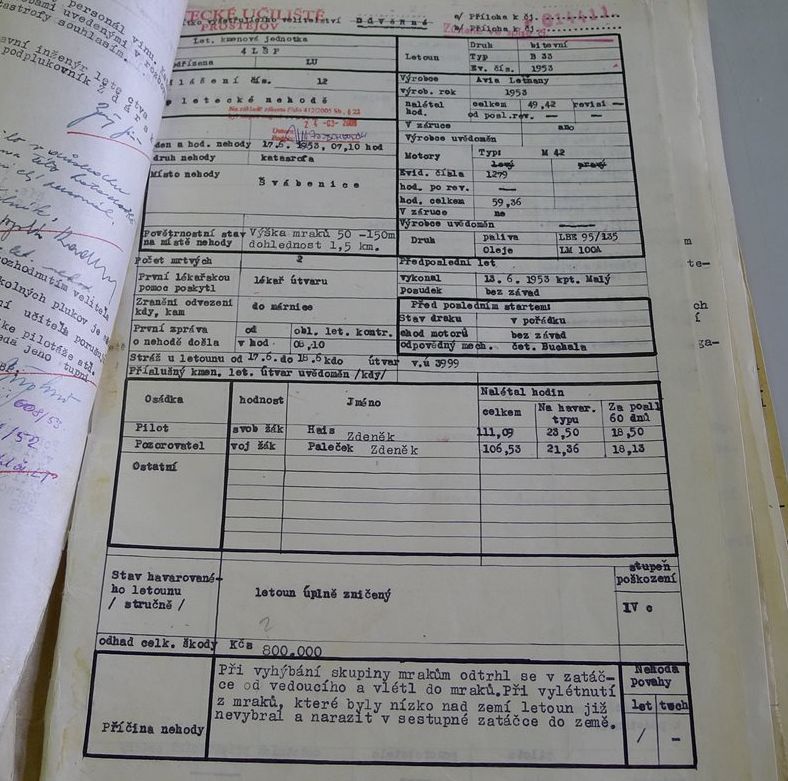 personál vinu.
bami uvedenými v
astrofy souhlasím.
avní inženýr lete ctva
podplukovník Z d á r s
rozhodnutím velitele
kolných pluků je
ní učitelů porušu
ke pilotáže atd.
edá jeno tupni
608/53
/52
ECKÉ UČILIŠTĚ
PROSTĚJOV
velitelství Důvěrné
a/ Příloha k čj.
b/ Příloha k čj.
014411
Let. kmenová jednotka
4 LŠP
odřízena LU
lášení čís. 12
o letecké nehodě
Na základě zákona číslo 412/2005 Sb. § 22
den a hod. nehody 17.6. 1953, 07,10 hod
druh nehody katasrofa
Místo nehody
Švábenice
Povětrnostní stav Výška mraků 50 -150m
na místě nehody dohlednost 1,5 km.
Letoun
Druh bitevní
Typ B 33
Ev. čís. 1953
Výrobce Avia Letňany
výrob. rok 1953
nalétal celkem 49,42 revisi —
hod. od posl.rev. — —
V záruce ano
Výrobce uvědoměn
Motory Typ: M 42
levý pravý
Evid. čísla 1279
hod. po rev. —
hod. celkem 59,36
V záruce ne
Výrobce uvědoměn —
Druh paliva LBE 95/135
Oleje LM 100A
Počet mrtvých 2
První lékařskou lékař útvaru
pomoc poskytl
Zranění odvezeni do márnice
kdy, kam
První zpráva od obl. let. kontr.
o nehodě došla v hod. 08,10
Předposlední let
vykonal 13. 6. 1953 kpt. Malý
posudek bez závad
Před posledním startem:
Stav draku v pořádku
chod motorů bez závad
odpovědný mech. čet. Buchala
Stráž u letounu od 17.6.do 18,6 kdo útvar v.ú 3999
Příslušný kmen. let. útvar uvědoměn /kdy/
Osádka hodnost Jméno Nalétal hodin
celkem Na havar. typu Za posl 60 dnů
Pilot svob žák Hais Zdeněk 111,09 23,50 18,50
Pozorovatel voj žák Paleček Zdeněk 106,53 21,36 18,13
Ostatní
Stav havarované-
ho letounu
/ stručně /
letoun úplně zničený
stupeň
poškození
IV c
odhad celk. škody Kčs 800.000
Příčina nehody
Při vyhýbání skupiny mrakům odtrhl se v zatáč-
ce od vedoucího a vlétl do mraků.Při vylétnutí
z mraků, které byly nízko nad zemí letoun již
nevybral a narazit v sestupné zatáčce do země.
Nehoda
povahy
let tech
/ -
m
te-
ch
í
ga-